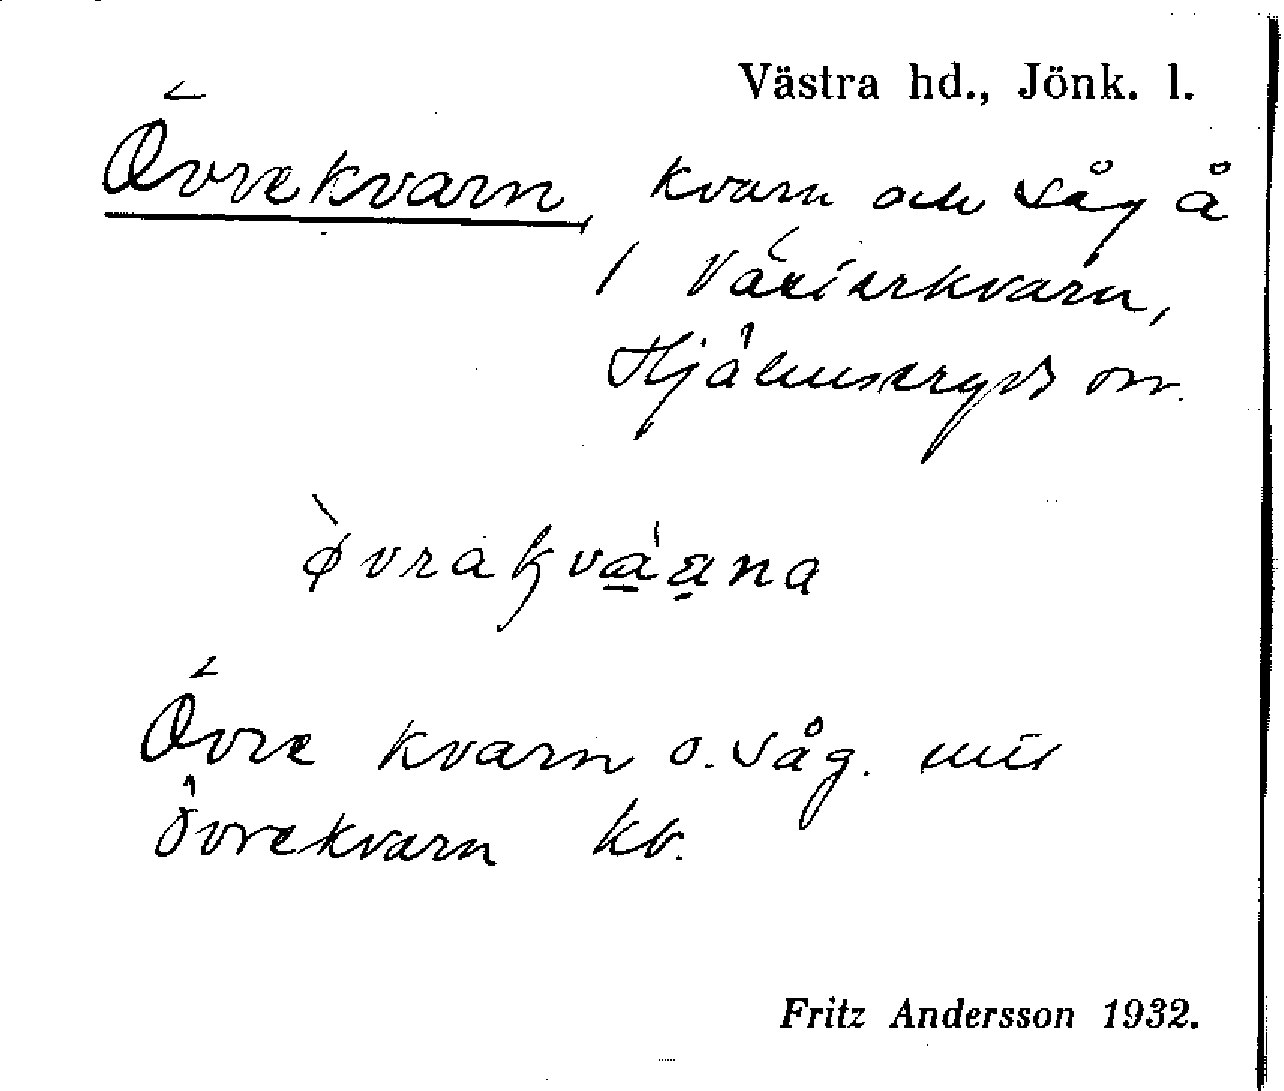 Västra hd., Jönk. l.
Övrekvarn, kvarn och såg å
1 Västerkvarn,
Hjälmseryds sn.
Övre kvarn o. såg.
övrekvarn kv.
Fritz Andersson 1932.